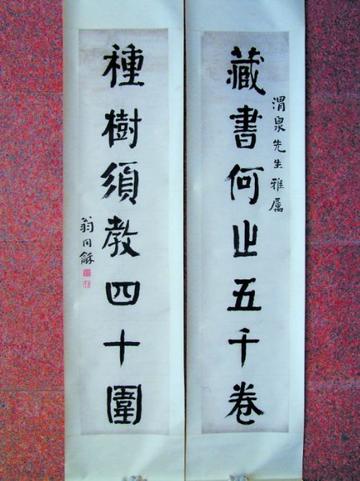 藏書何止五千卷
渭泉先生雅属
種樹須教四十圍
翁同龢